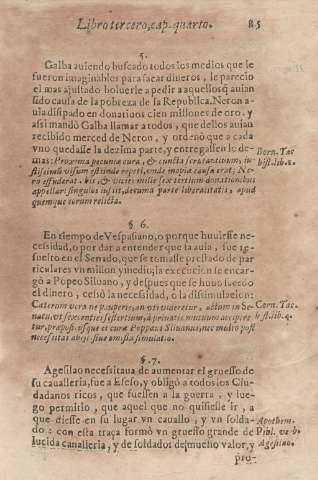 Libro tercero, cap. quarto. 85
5.
Galba auiendo buscado todos los medios que le
fueron imaginables para sacar dineros, le parecio
el mas ajustado boluerle a pedir a aquellos q̃ auian
sido causa de la pobreza de la Republica. Neron a-
uia disipado en donatiuos cien millones de oro. y
assi mandò Galba llamar a todos, que dellos auian
recibido merced de Neron, y ordenó que a cada
vno quedasse la dezima parte, y entregassen lo de-
mas: Proxima pecuniæ cura, & cuncta scrutantibus, iu-
stissimũ visum est inde repeti, vnde inopiæ causa erat; Ne-
ro effuderat. bis & vicies millies sextertium donationibus
appellari singulos iussit, decuma parte liberalitatis, apud
quemque eorum relicta.
Corn. Tac.
hist. lib. 1.
§. 6.
En tiempo de Vespasiano, o porque huuiesse ne-
cessidad, o por dar a entender que la auia, fue re-
suelto en el Senado, que se tomasse prestado de par-
ticulares vn millon y medio, la execucion se encar-
gò a Popeo Siluano, y despues que se huuo sacado
el dinero, cessò la necessidad, o la dissimulacion:
Cæterum vera ne pauperie, an vti videretur, actum in Se-
natu, vt sexcenties sestertium, à priuatis mutuum accipere
tur, præpos. usque ei curæ Poppæus Siluanus, nec multo post
necessitas abijt, siue omissa simulatio.
Corn. Tac.
hist. lib. 4.
§. 7.
Agesilao necessitaua de aumentar el gruesso de
su caualleria, fue a Efeso, y obligò a todos los Ciu-
dadanos ricos, que fuessen a la guerra, y lue-
go permitio, que aquel que no quisiesse ir, a
que diesse en su lugar vn cauallo, y vn solda-
do: con esta traça formò vn gruesso grande de
lucida caualleria, y de soldados de mucho valor, y
Apothem.
Agesilao.
pro-